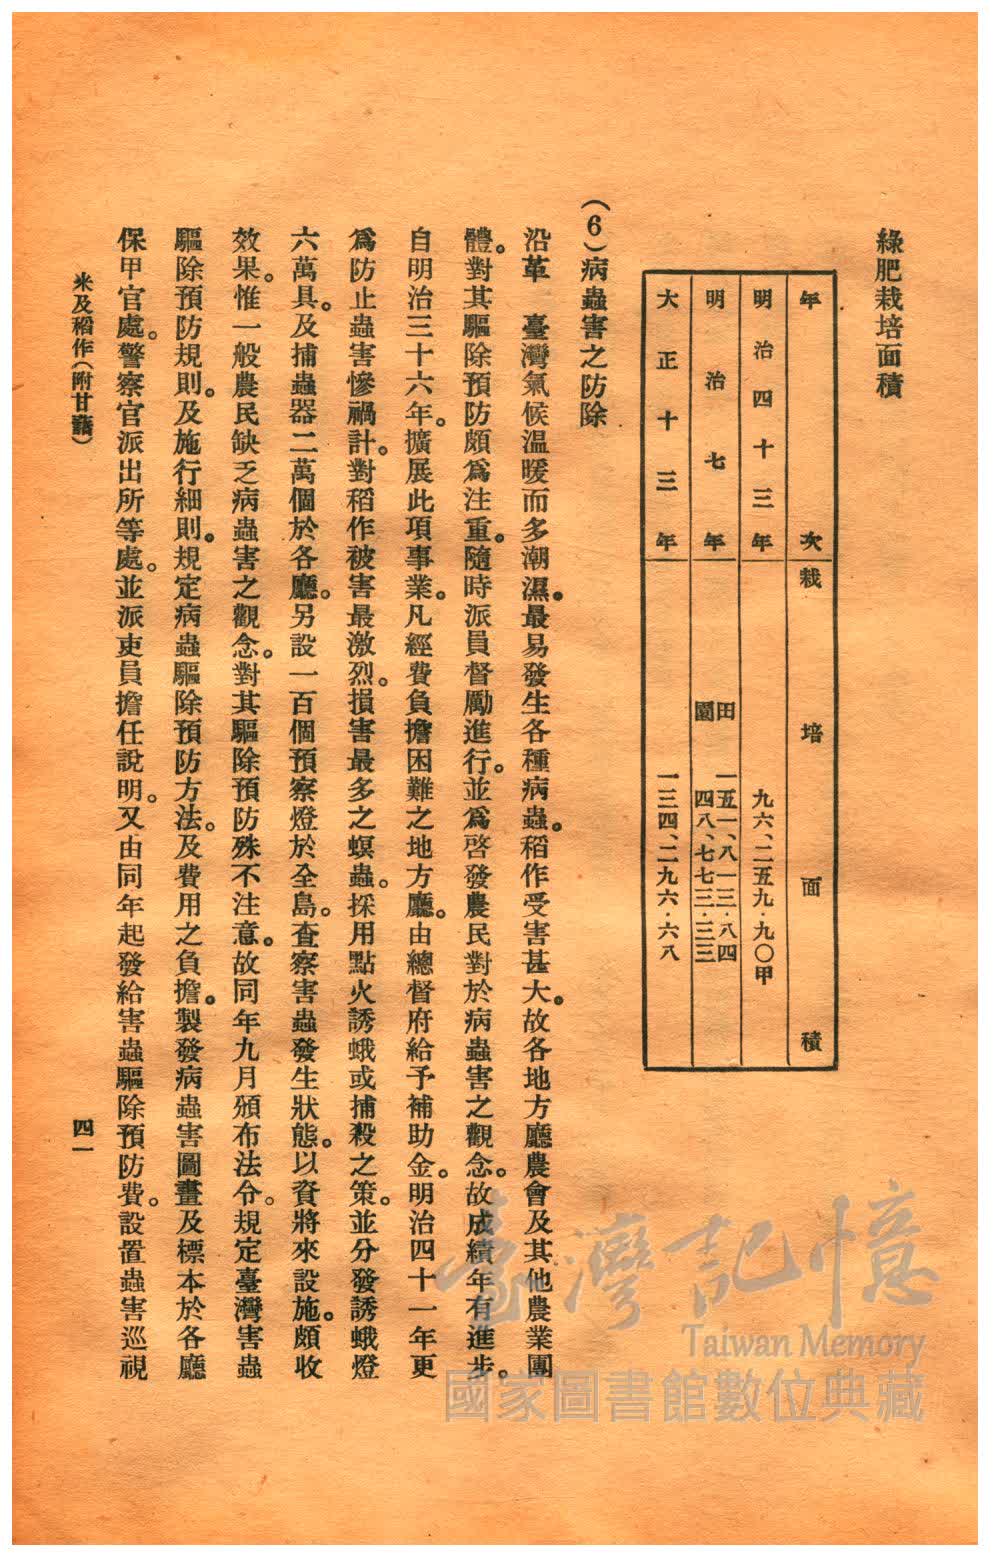 綠肥栽培面積
年次 栽培面積
明治四十三年 九六、二五九・九〇甲
明治七年 田 一五一、八一三・八四
園 四八、七七三・三三
大正十三年 一三四、二九六・六八
(6)病蟲害之防除
沿革 臺灣氣候温暖而多潮濕。最易發生各種病蟲。稻作受害甚大。故各地方廳農會及其他農業團
體。對其驅除預防頗爲注重。隨時派員督勵進行。並爲啓發農民對於病蟲害之觀念。故成績年有進步。
自明治三十六年。擴展此項事業。凡經費負擔困難之地方廳。由總督府給予補助金。明治四十一年更
爲防止蟲害慘禍計。對稻作被害最激烈。損害最多之螟蟲。採用點火誘蛾或捕殺之策。並分發誘蛾燈
六萬具。及捕蟲器二萬個於各廳。另設一百個預察燈於全島。查察害蟲發生狀態。以資將來設施。頗收
效果。惟一般農民缺乏病蟲害之觀念。對其驅除預防殊不注意。故同年九月頒布法令。規定臺灣害蟲
驅除預防規則。及施行細則。規定病蟲驅除預防方法。及費用之負擔。製發病蟲害圖畫及標本於各廳
保甲官處。警察官派出所等處。並派吏員擔任說明。又由同年起發給害蟲驅除預防費。設置蟲害巡視
米及稻作(附甘藷)
四一
臺灣記憶
Taiwan Memory
國家圖書館數位典藏